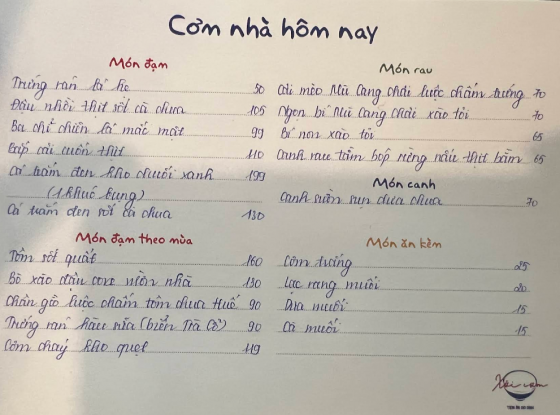 Cơm nhà hôm nay
Món đạm
Trứng rán lá hẹ 50
Đậu nhồi thịt sốt cà chua 105
Ba chỉ chiên lá mắc mật 99
Bắp cải cuốn thịt 110
Cá trắm đen kho chuối xanh 199
(1 khúc bụng)
Cá trắm đen sốt cà chua 130
Món đạm theo mùa
Tôm sốt quất 160
Bò xào đậu cove vườn nhà 130
Chân gà luộc chấm tôm chua Huế 90
Trứng rán hàu sữa (biển Trà Cổ) 90
Cơm cháy kho quẹt 119
Món rau
Cải mèo Mù Cang Chải luộc chấm trứng 70
Ngọn bí Mù Cang Chải xào tỏi 70
Bí non xào tỏi 65
Canh rau tầm bóp riêng nấu thịt băm 65
Món canh
Canh sườn sụn dưa chua 70
Món ăn kèm
Cơm trắng 25
Lạc rang muối 20
Dưa muối 15
Cà muối 15